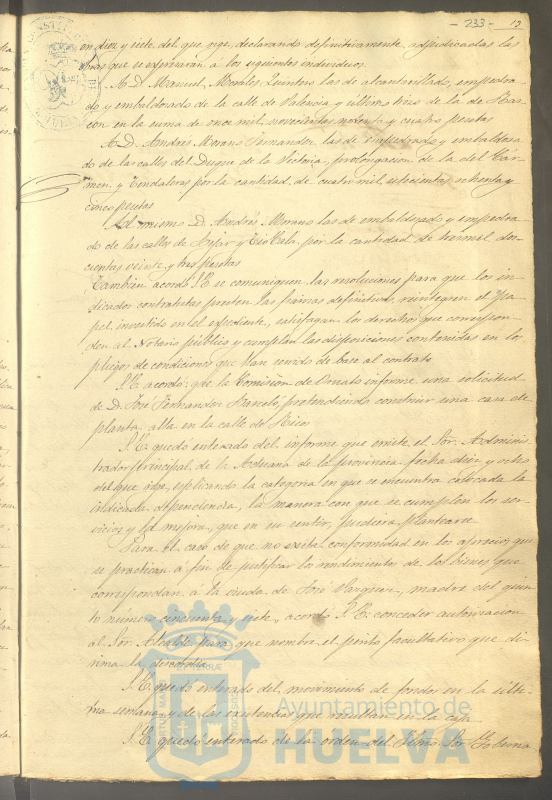 - 233 - 19
en diez y siete del que rige, declarando definitivamente adjudicadas las
obras que se expresarán a los siguientes individuos.
A D. Manuel Morales Quintero las de alcantarillado, empedra-
do y embaldosado de la calle de Valencia y último tras de la de Ras-
con en la suma de once mil novecientas noventa y cuatro pesetas
A D. Andrés Morano Fernandez las de empedrado y embaldosa-
do de las calles del Duque de la Victoria, prolongacion de la del Car-
men y Tendaleras por la cantidad de cuatro mil setecientas ochenta y
cinco pesetas
Al mismo D. Andrés Morano las de embaldosado y empedra-
do de las calles de por la cantidad de tres mil dos-
cientas veinte y tres pesetas
Tambien acordó S.E. se comuniquen las resoluciones para que los in-
dicados contratistas presten las fianzas definitivas, reintegren el pa-
pel invertido en el expediente, satisfagan los derechos que correspon-
den al Notario público y cumplan las disposiciones contenidas en los
pliegos de condiciones que han servido de base al contrato
S.E. acordó: que la Comision de Ornato informe una solicitud
de D. José Fernandez Barcelo, pretendiendo construir una casa de
planta alta en la calle del
S.E. quedó enterado del informe que emite el Sor. Adminis-
trador principal de la Aduana de la provincia, fecha diez y ocho
del que rige, esplicando la categoria en que se encuentra colocada la
indicada dependencia, la manera con que se cumplen los ser-
vicios y la mejora, que en su sentir, pudiera plantearse
Para el caso de que no exista conformidad en los aprecios que
se practican a fin de justificar los rendimientos de los bienes que
correspondan a la viuda de José Vazquez, madre del quin-
to número cincuenta y siete, acordó S.E. conceder autorizacion
al Sor. Alcalde para que nombre el perito facultativo que di-
rima la discordia
S.E. quedó enterado del movimiento de fondos en la últi-
ma semana y de las existencias que resultan en la caja
S.E. quedó enterado de la orden del Iltmo. Sor. Goberna-
Ayuntamiento de
HUELVA